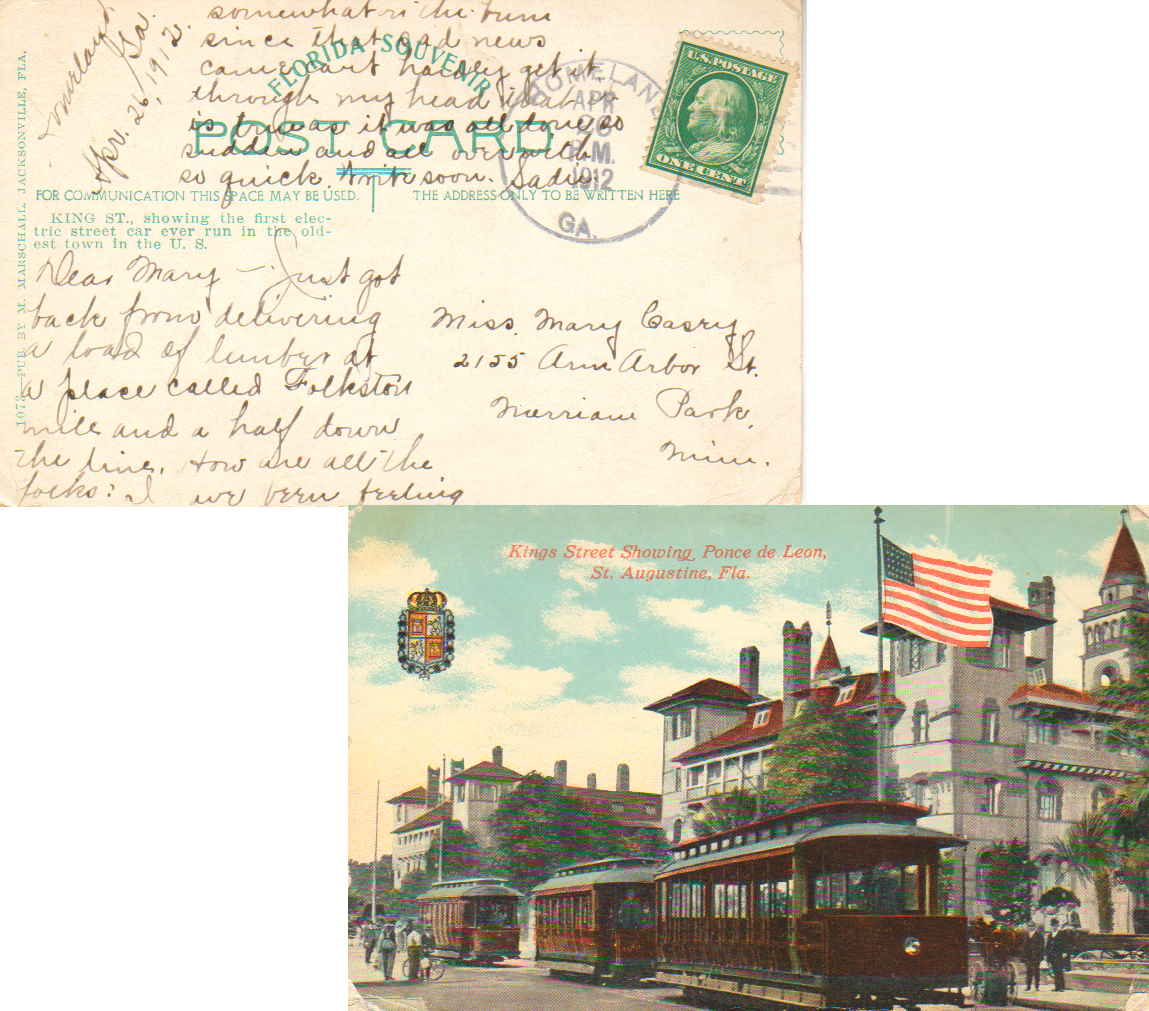 Homeland, Ga.
Apr. 26, 1912.
FLORIDA SOUVENIR
POST CARD
FOR COMMUNICATION THIS SPACE MAY BE USED.
THE ADDRESS ONLY TO BE WRITTEN HERE
KING ST., showing the first elec-
tric street car ever run in the old-
est town in the U. S.
1072—PUB. BY M. MARSCHALL, JACKSONVILLE, FLA.
Dear Mary — Just got
back from delivering
a load of lumber at
a place called Folkston
mile and a half down
the line. How are all the
folks? I've been feeling
somewhat on the bum
since that sad news
came can't hardly get it
through my head that
is true as it was all done so
sudden and all over with
so quick. Write soon. Sadie.
HOMELAND
APR
26
P.M.
1912
GA.
U.S. POSTAGE
ONE CENT
Miss. Mary Casey,
2155 Ann Arbor St.
Merriam Park,
Minn.
Kings Street Showing Ponce de Leon,
St. Augustine, Fla.